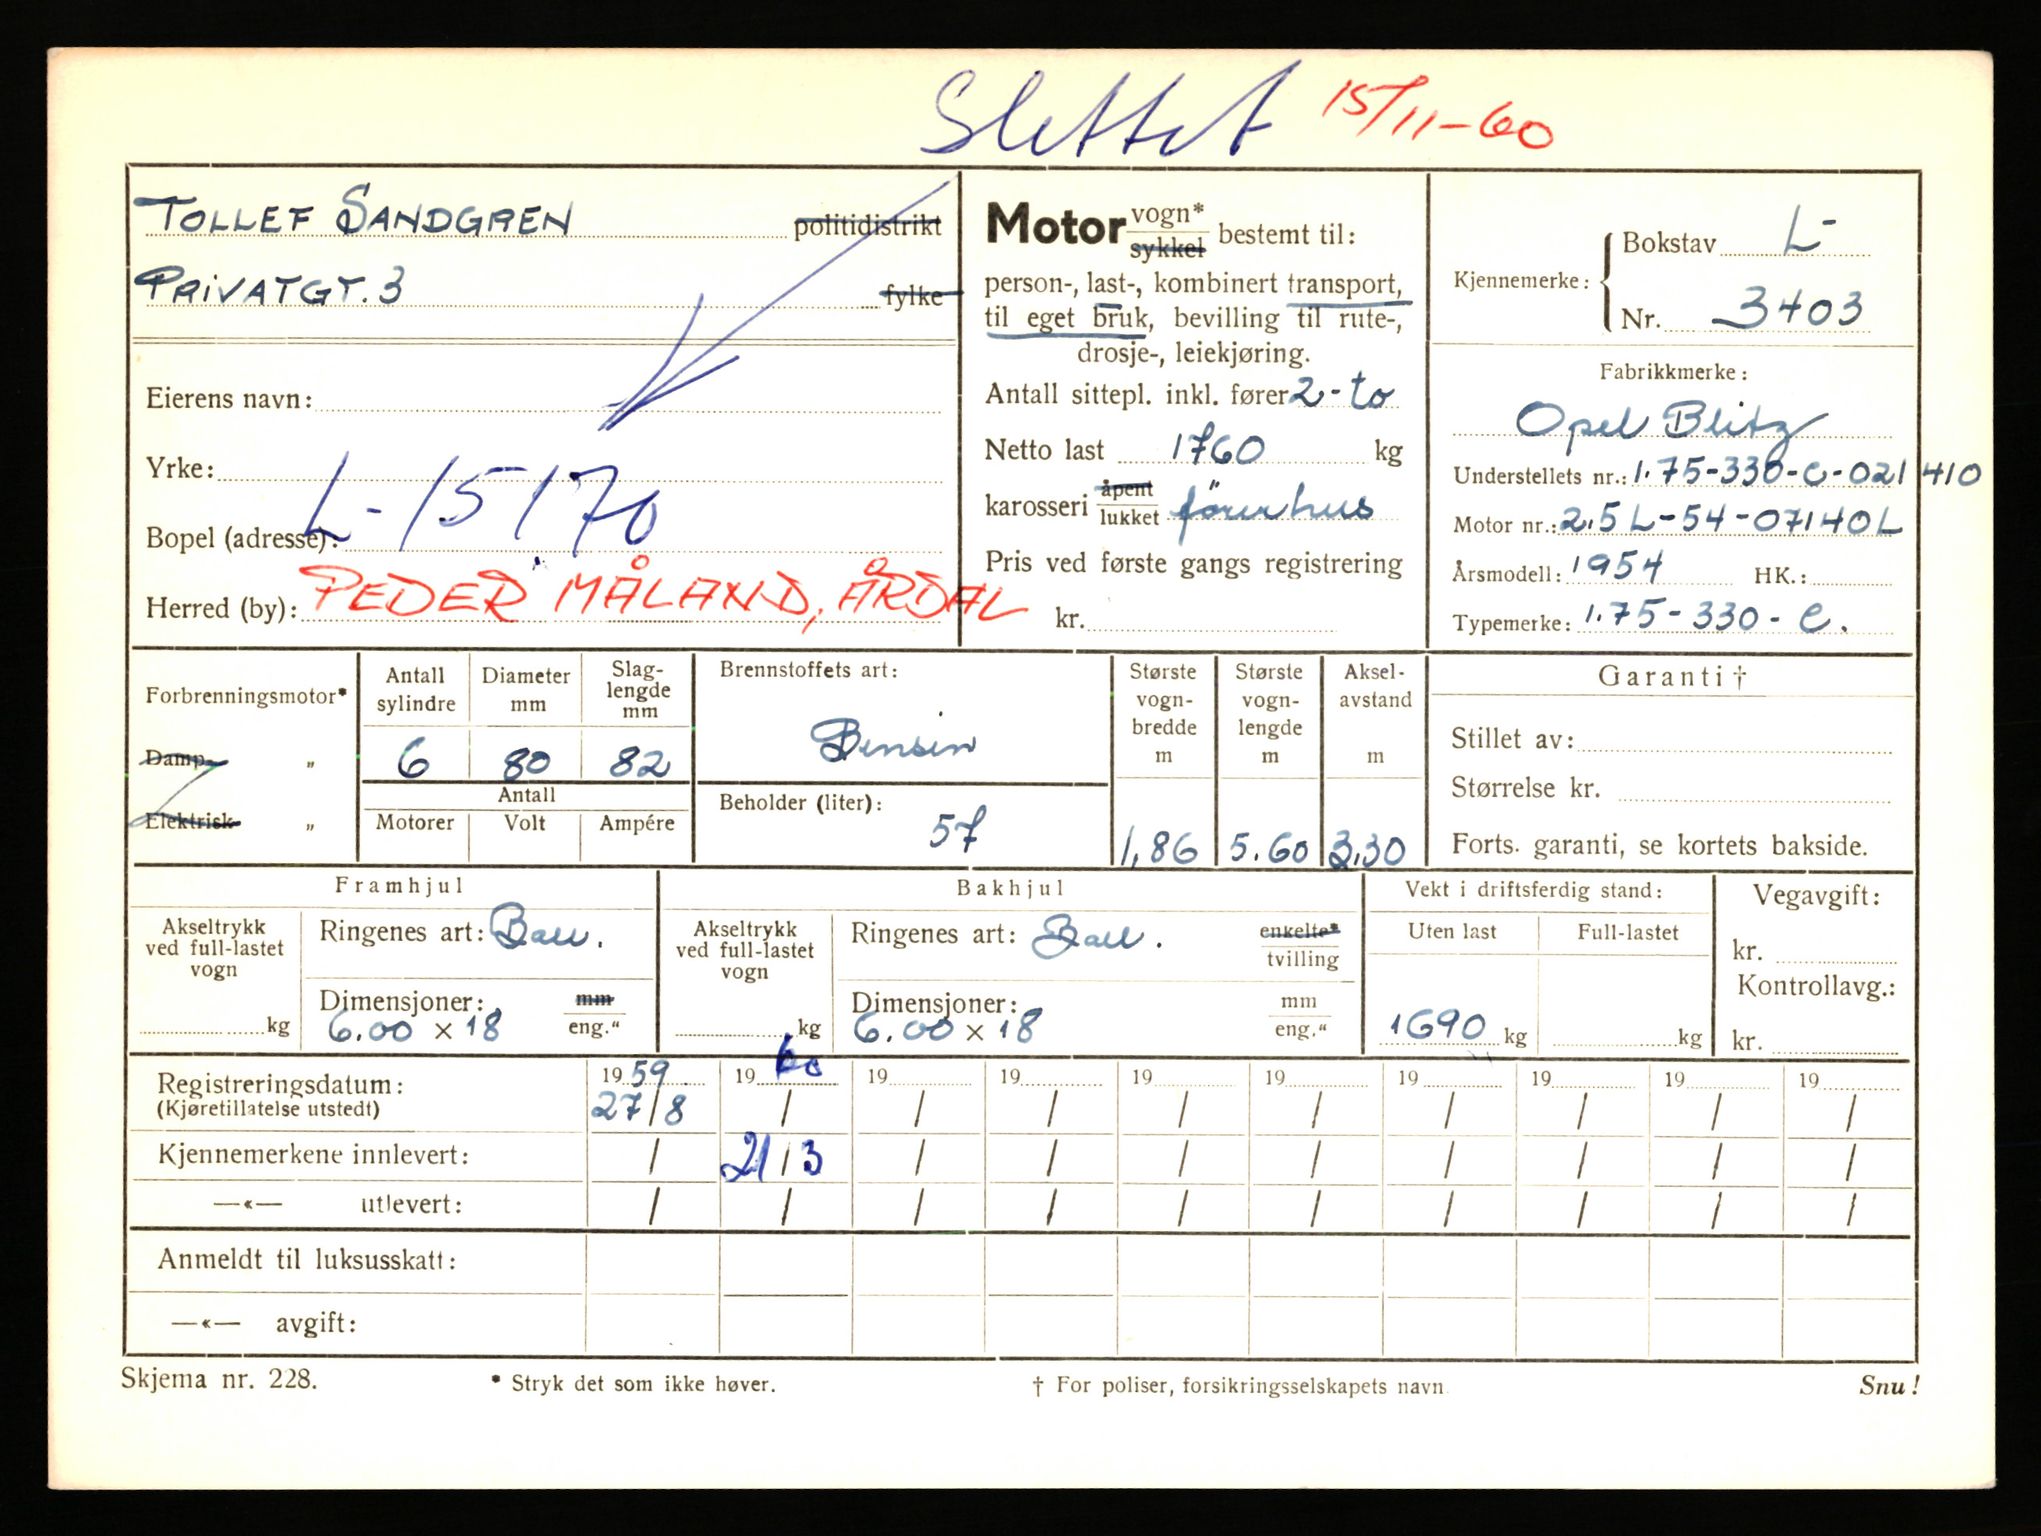 Slettet 15/11-60
TOLLEF SANDGREN politidistrikt
PRIVATGT. 3 fylke
Eierens navn:
Yrke:
L-15170
Bopel (adresse):
Herred (by): PEDER MÅLAND, ÅRDAL
Motor vogn* sykkel bestemt til:
person-, last-, kombinert transport,
til eget bruk, bevilling til rute-,
drosje-, leiekjøring.
Antall sittepl. inkl. fører 2-to
Netto last 1760 kg
karosseri åpent lukket førerhus
Pris ved første gangs registrering
kr.
Kjennemerke: Bokstav L-
Nr. 3403
Fabrikkmerke:
Opel Blitz
Understellets nr.: 1.75-330-C-021410
Motor nr.: 2,5L-54-07140L
Årsmodell: 1954 HK.:
Typemerke: 1.75-330-C.
Forbrenningsmotor*
Damp- "
Elektrisk "
Antall sylindre
6
Diameter mm
80
Slaglengde mm
82
Antall
Motorer Volt Ampére
Brennstoffets art:
Bensin
Beholder (liter):
57
Største vogn-bredde m
1,86
Største vogn-lengde m
5.60
Aksel-avstand m
3.30
Garanti †
Stillet av:
Størrelse kr.
Forts. garanti, se kortets bakside.
Framhjul
Akseltrykk ved full-lastet vogn
kg
Ringenes art: Ball.
Dimensjoner: mm
6.00 × 18 eng."
Bakhjul
Akseltrykk ved full-lastet vogn
kg
Ringenes art: Ball. enkelte* tvilling
Dimensjoner: mm
6.00 × 18 eng."
Vekt i driftsferdig stand:
Uten last Full-lastet
1690 kg kg
Vegavgift:
kr.
Kontrollavg.:
kr.
Registreringsdatum: 1959 1960 19 19 19 19 19 19 19 19
(Kjøretillatelse utstedt) 27/8 / / / / / / / / /
Kjennemerkene innlevert: / 21/3 / / / / / / / /
—«— utlevert: / / / / / / / / / /
Anmeldt til luksusskatt:
—«— avgift:
Skjema nr. 228. * Stryk det som ikke høver. † For poliser, forsikringsselskapets navn Snu!